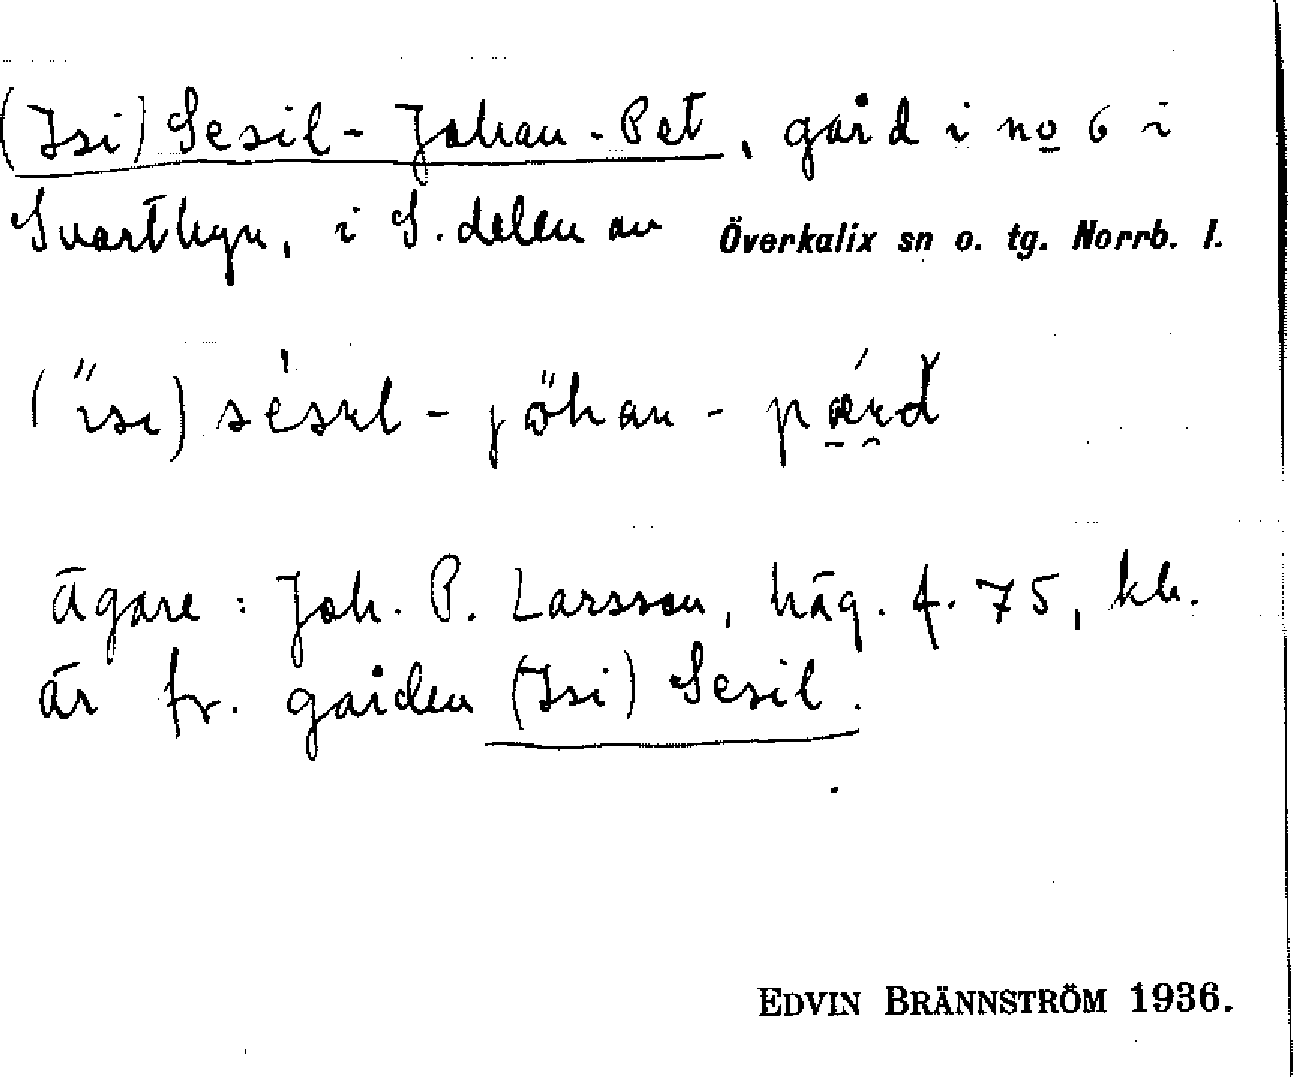 (Isi) Sesil-Johan-Pet, gård i no 6 i
Svartbyn, i S. delen av Överkalix sn o. tg. Norrb. l.
(ı̋sı) sésıl - jőhan - pǽıd
ägare: Joh. P. Larsson, häg. f. 75,
är fr. gården (Isi) Sesil.
EDVIN BRÄNNSTRÖM 1936.